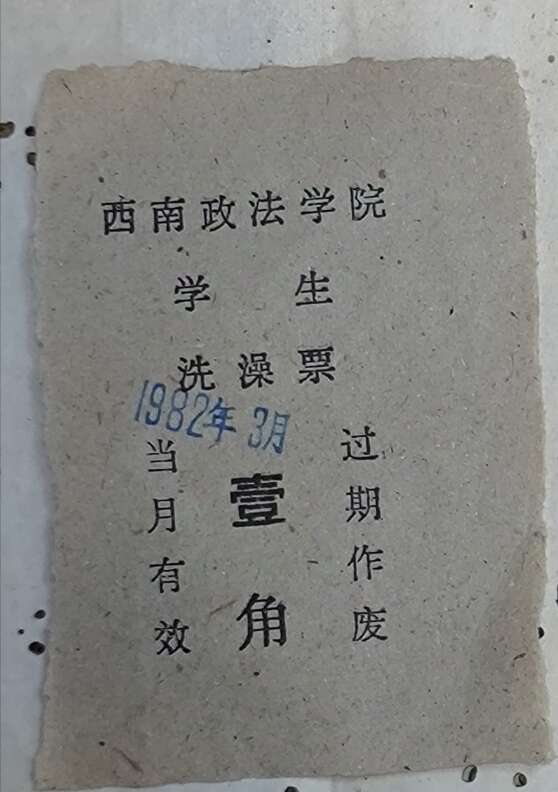 西南政法学院
学生
洗澡票
1982年3月
当月有效
壹角
过期作废